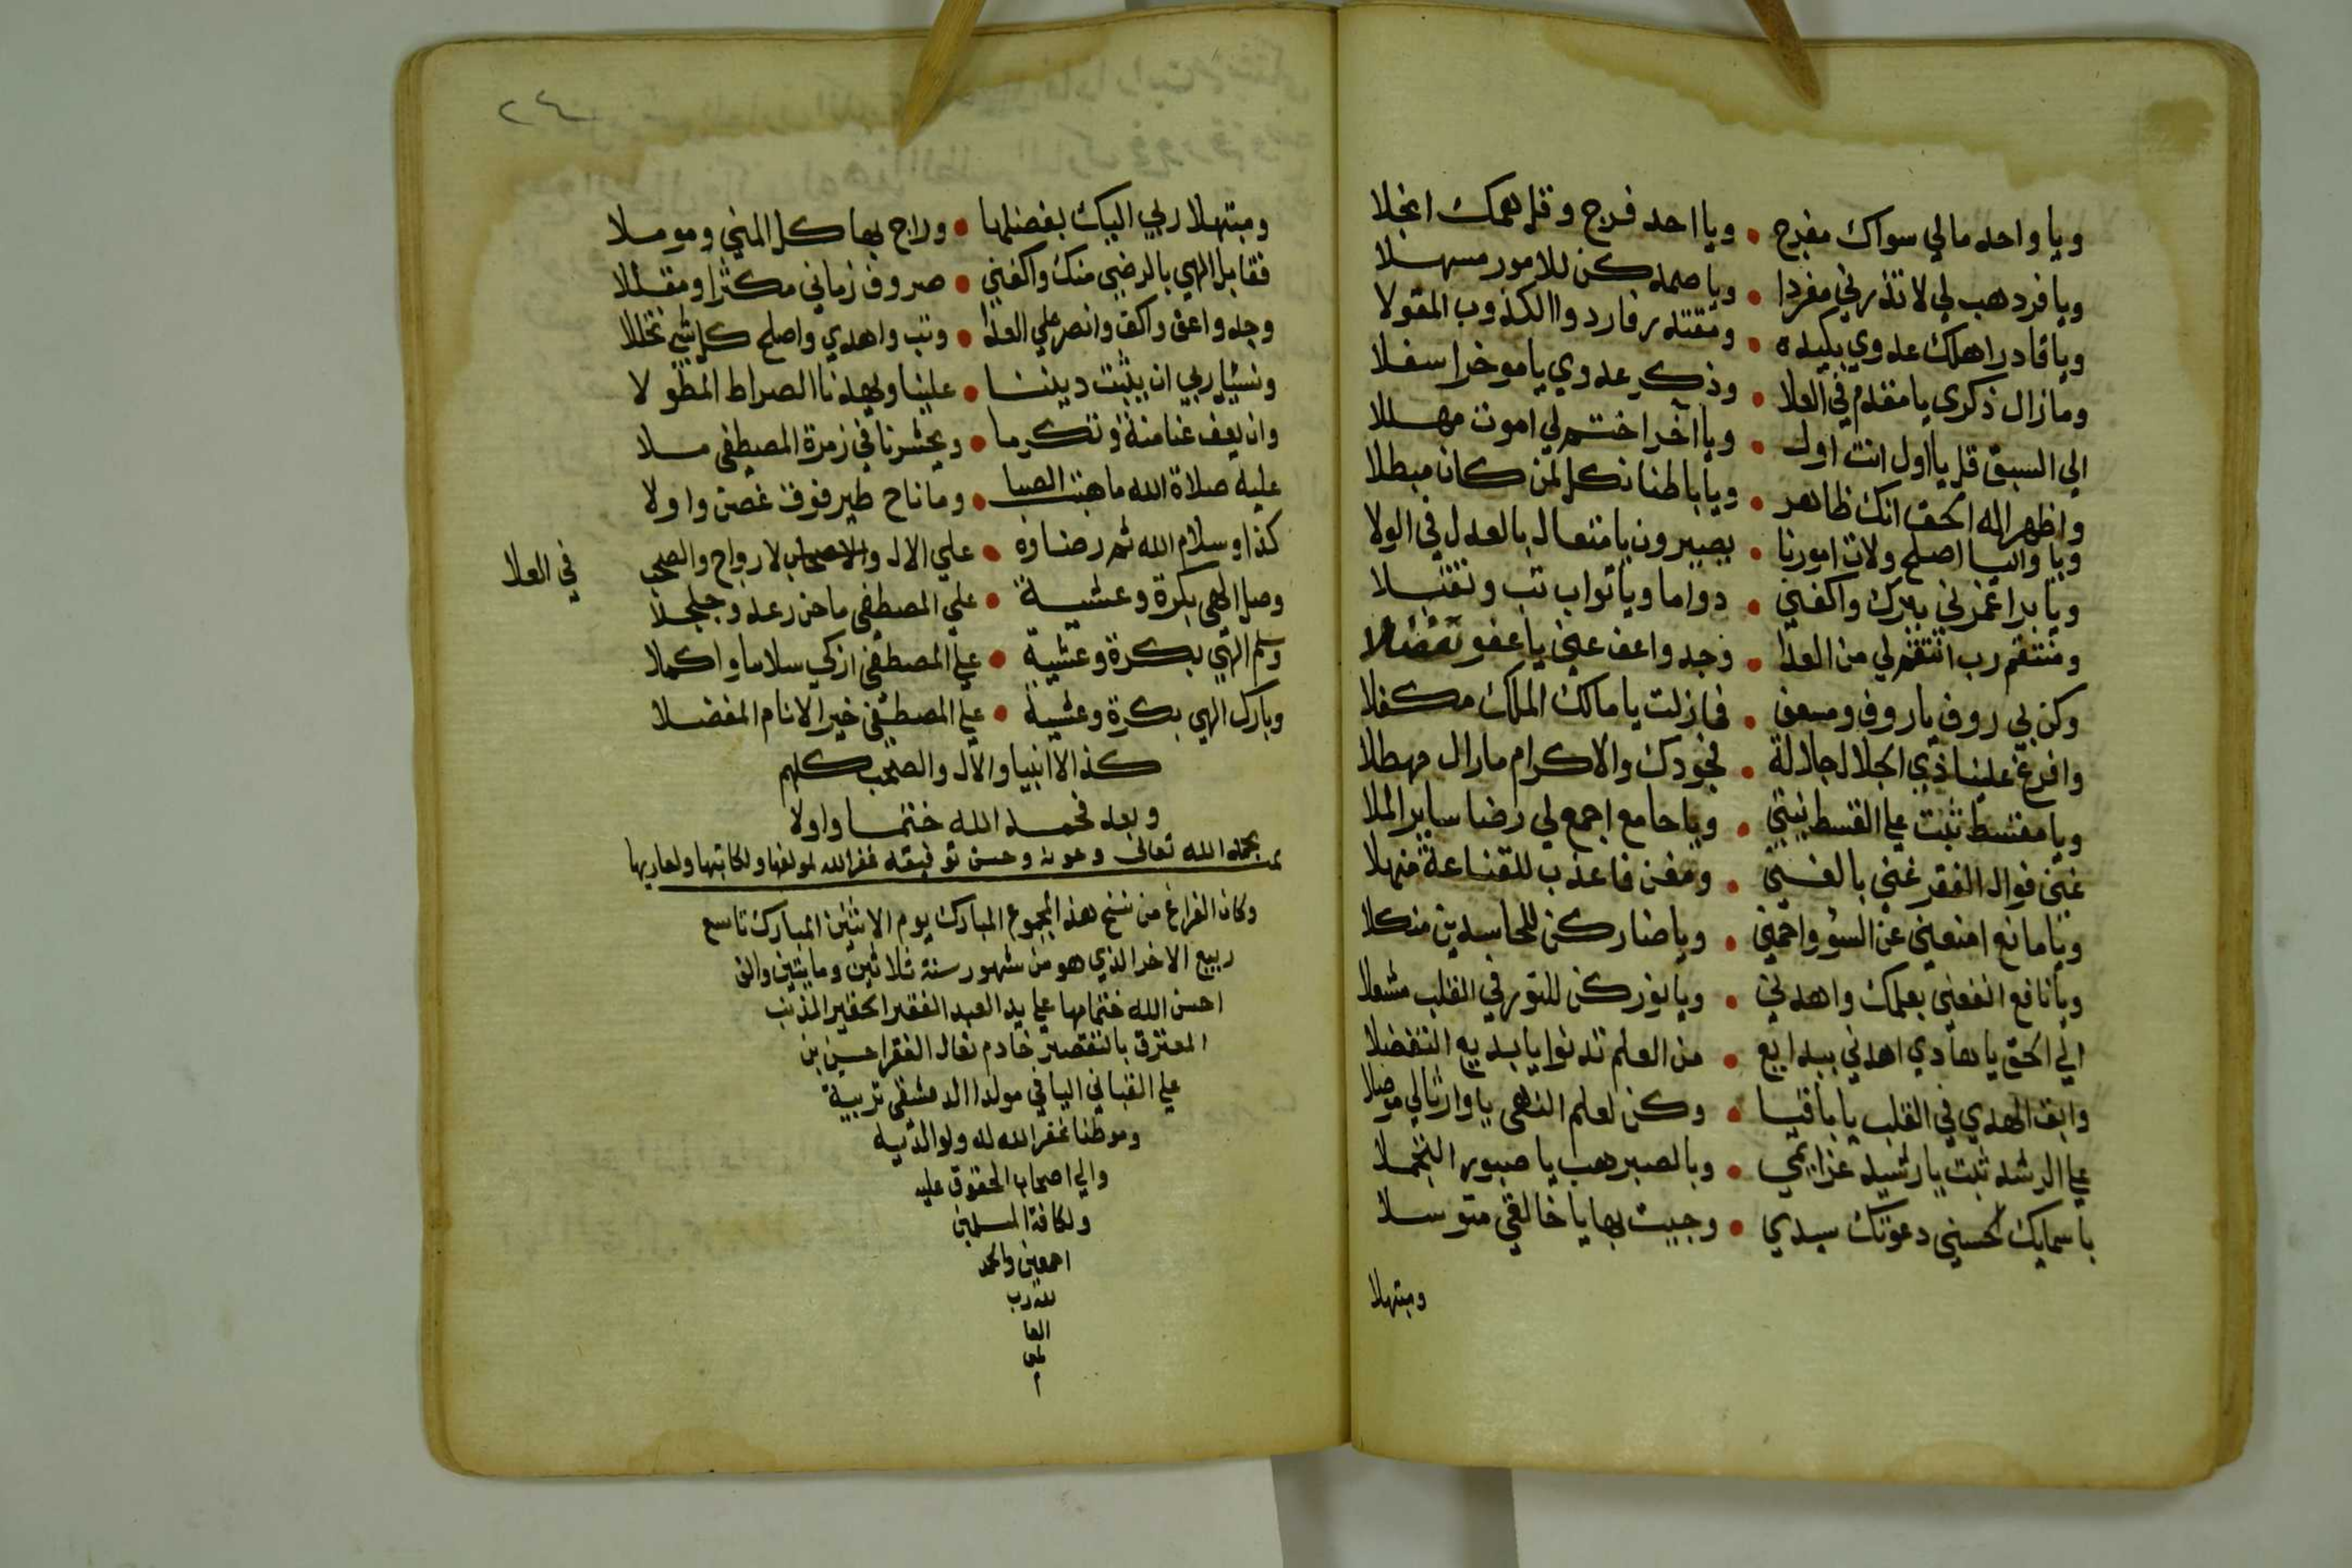 ويا واحد مالي سواك مفرج • ويا احد فرج وقل همك انجلا
ويا فرد هب لي لا تذرني مفردا • ويا صمد كن للامور مسهلا
ويا قادرا هلك عدوي بكيده • ومقتدر فاردد الكذوب المقولا
وما زال ذكرى يا مقدم في العلا • وذكر عدوي يا موخر اسفلا
الي السبق قل يا اول انت اول • ويا آخرا ختم لي اموت مهللا
واظهر اله الحق انك ظاهر • ويا باطنا نكل لمن كان مبطلا
ويا واليا اصلح ولات امورنا • يصيرون يا متعال بالعدل في الولا
ويا برا غمرني ببرك واكفني • دواما ويا تواب تب وتقبلا
ومنتقم رب انتقم لي من العدا • وجد واعف عني يا عفو تفضلا
وكن بي روف يا روف ومسعف • فما زلت يا مالك الملك مكفلا
وافرغ علينا ذي الجلال جلالة • فجودك والاكرام مازال مهطلا
ويا مقسط ثبت علي القسط نيتي • ويا جامع اجمع لي رضا ساير الملا
غني فوال الفقر غني بالغني • ومغن فاعذب للقناعة منهلا
ويا مانع امنعني عن السؤ واحمني • ويا ضار كن للحاسدين منكلا
ويا نافع انفعني بعلمك واهدني • ويا نور كن للنور في القلب مشعلا
الي الحق يا هادي اهدني ببدايع • من العلم تدنوا يا بديع التفضلا
وابق الهدي في القلب يا باقيا • وكن لعلم النهي يا وارثا لي موصلا
علي الرشد ثبت يا رشيد عزايمي • وبالصبر هب يا صبور التجملا
باسمايك الحسني دعوتك سيدي • وجيت بها يا خالقي متوسلا
ومبتهلا
٢٤
ومبتهلا ربي اليك بفضلها • وراج بها كل المني ومو ملا
فقابل الهي بالرضي منك واكفني • صروف زماني مكثرا ومقللا
وجد واعف واكف وانصر علي العدا • وتب واهدي واصلح كل شي تخللا
ونسئل ربي ان يثبت ديننا • علينا ويهدنا الصراط المطولا
وان يعف عنا منة وتكرما • ويحشرنا في زمرة المصطفي ملا
عليه صلاة الله ما هبت الصبا • وما ناح طير فوق غصن واولا
كذا وسلام الله ثم رضاوه • علي الال والاصحاب لارواح والصحب في العلا
وصل الهي بكرة وعشية • علي المصطفي ما حن رعد وجلجلا
وسلم الهي بكرة وعشية • علي المصطفي ازكي سلاما واكملا
وبارك الهي بكرة وعشية • علي المصطفي خير الانام المفضلا
كذا الانبيا والآل والصحب كلهم
وبعد فحمد الله ختما واولا
تمت بحمد الله تعالى وعونه وحسن توفيقه غفر الله لمولفها ولكاتبها ولقاريها
وكان الفراغ من نسخ هذا المجموع المبارك يوم الاثنين المبارك تاسع
ربيع الاخر الذي هو من شهور سنة ثلاثين ومايتين والف
احسن الله ختامها علي يد العبد الفقير الحقير المذنب
المعترف بالتقصير خادم نعال الفقرا حسين بن
علي القباني اليافي مولدا الدمشقي تربية
وموطنا غفر الله له ولوالديه
والي اصحاب الحقوق عليه
ولكافة المسلمين
اجمعين والحمد
لله رب
العا
لمين
م